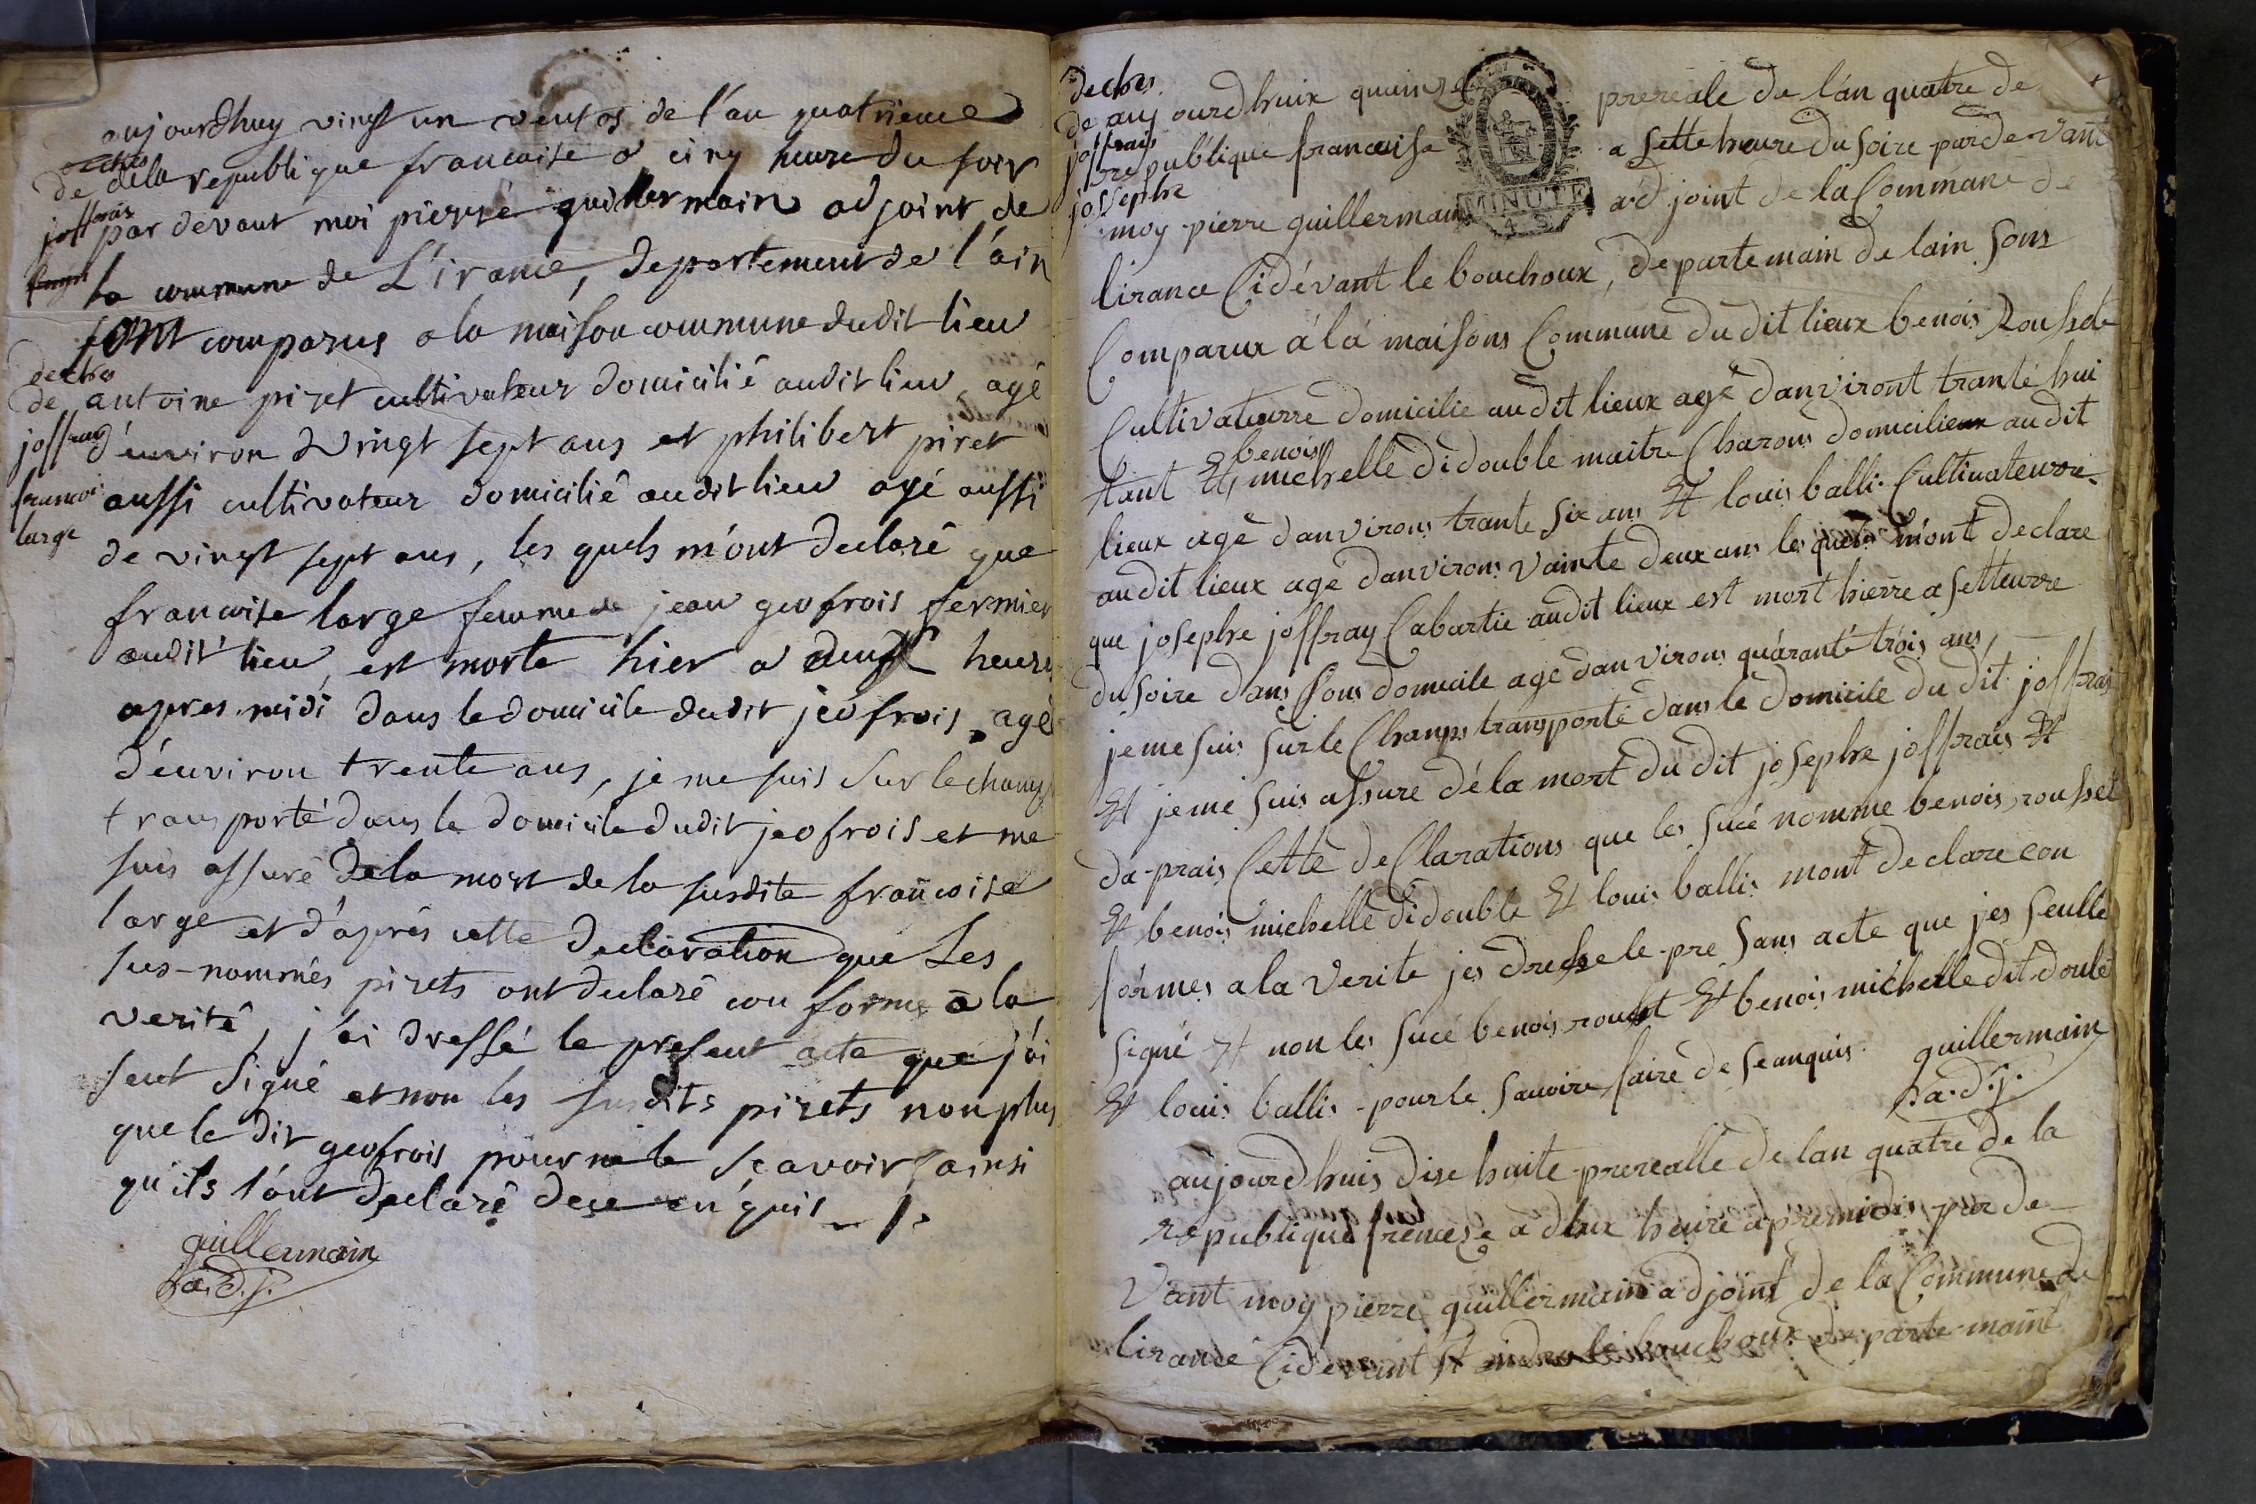 aujourdhuy vingt un ventos de l'an quatrieme
deches
de
joffrais
dela republique francaise a cinq heure du soir
par devant moi pierre guillermain adjoint de
la commune de L'irance, departement de l'ain
sont comparus a la maison commune dudit lieu
deches
de
joffray
francoi
large
antoine piret cultivateur domicilié audit lieu agé
d'environ vingt sept ans et philibert piret
aussi cultivateur domicilié audit lieu agé aussi
de vingt sept ans, les quels m'ont declaré que
francoise large femme de jean geofrois fermier
audit lieu, est morte hier a deux heure
apres midi dans le domicile dudit jeofrois, agé
d'environ trente ans, je me suis sur le champ
transporté dans le domicile dudit jeofrois et me
suis assuré de la mort de la susdite francoise
large et d'après cette declaration que Les
sus-nommés pirets ont declaré conforme à la
verité, j'ai dressé le present acte que j'ai
seul signé et non les susdits pirets non plus
que le dit geofrois pour ne le scavoir ainsi
qu'ils l'ont declaré de ce enquis
guillermain
a.d.j.
deches
de
joffrais
josephe
MINUTE
aujourdhuix quinze prereale de l'an quatre de
republique francaise a sette heure du soire parde vant
moy pierre guillermain ad joint de la Commune de
lirance Cidévant le bouchoux, departemain de lain sons
Comparux à la maisons Commune du dit lieux benois Rousset
Cultivateurre domicilie audit lieux agé danviront tranté hui
tant Et benois michelle didouble maitre Charons domicilieux audit
lieux agé danvirons trante six ans Et louis balli Cultivateurre
audit lieux agé danvirons vainte deux ans les quels m'ont declare
que josephe joffray Cabartie audit lieux est mort hierre a setteurre
du soire dans sons domicile age danvirons quárante trois ans,
jeme suis surle Champs transporté dans le domicile du dit joffrais
Et jeme suis assuré dé la mort du dit josephe joffrais Et
da-prais Cette deClarations que les sucé nomme benois rousset
Et benois michelle didouble Et louis ballis mont declare con
formes a la verite jes dresse le pre sans acte que jes seulle
signé Et non les sucé benois rousset Et benois michelle dit doule
Et louis ballis pourle savoire faire de seanquis guillermain
a.d.j.
aujourdhuis dise huite prerealle de lan quatre de la
republique frencese a deux heure apremidis par de
vant moy pierre guillermain adjoint de la Commune de
lirance Cidevant st andre le bouchoux departe-maint